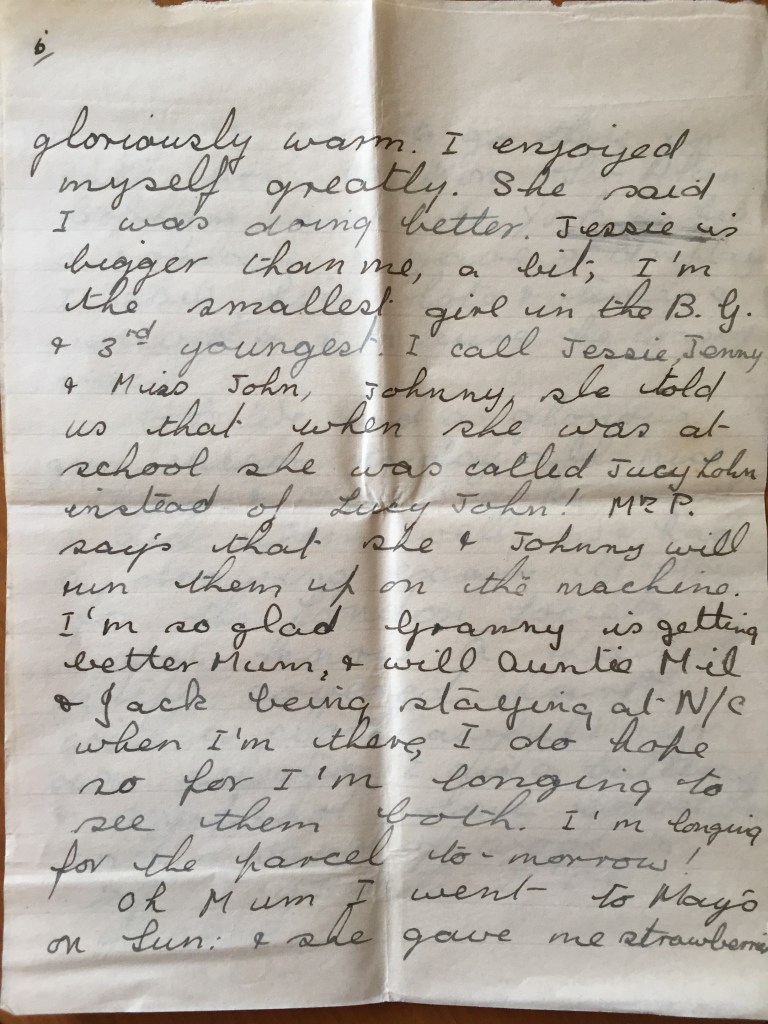 6/
gloriously warm. I enjoyed
myself greatly. She said
I was doing better. Jessie is
bigger than me, a bit; I'm
the smallest girl in the B. G.
& 3rd youngest. I call Jessie, Jenny
& Miss John, Johnny, she told
us that when she was at
school she was called Jucy Lohn
instead of Lucy John! Mrs P.
says that she & Johnny will
run them up on the machine.
I'm so glad Granny is getting
better Mum, & will Auntie Mil
& Jack being staying at N/c
when I'm there, I do hope
so for I'm longing to
see them both. I'm longing
for the parcel to-morrow!
Oh Mum I went to May's
on Sun: & she gave me strawberries